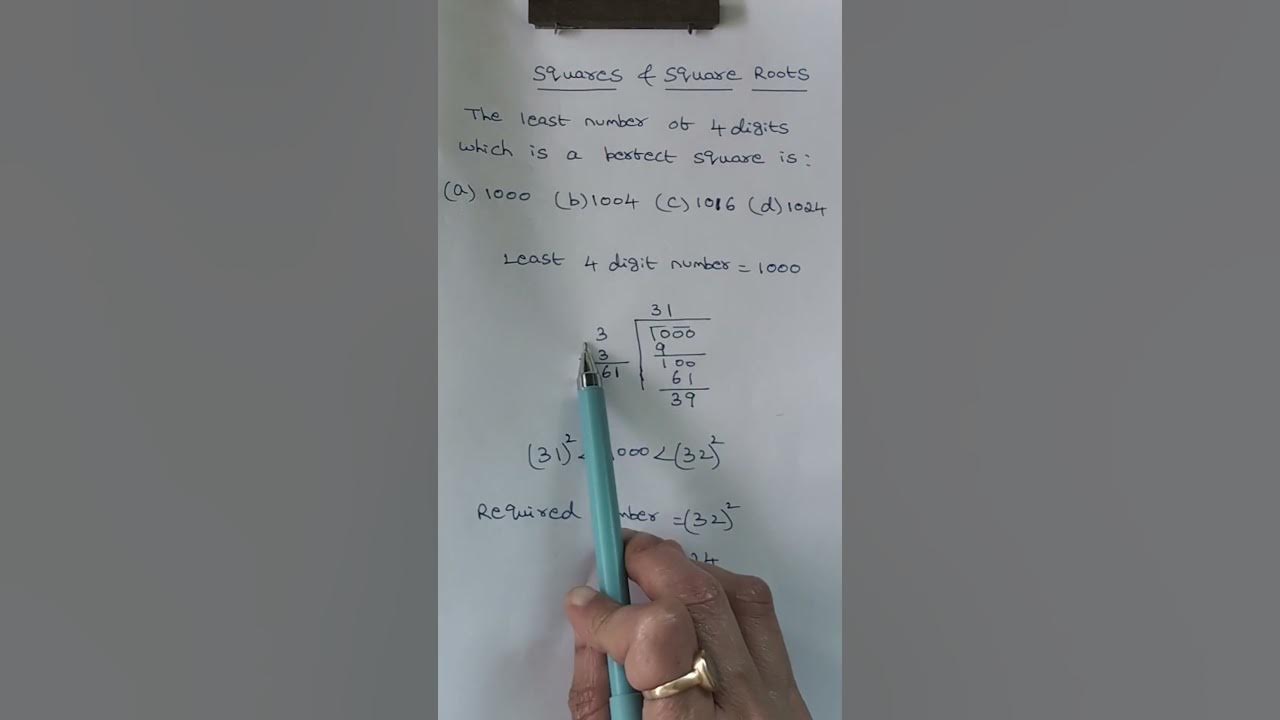 Squares & Square Roots
The least number of 4 digits
which is a perfect square is:
(a) 1000 (b) 1004 (c) 1016 (d) 1024
Least 4 digit number = 1000
31
3 1000
3 9
61 100
61
39
(31)² < 1000 < (32)²
Required = (32)²
24